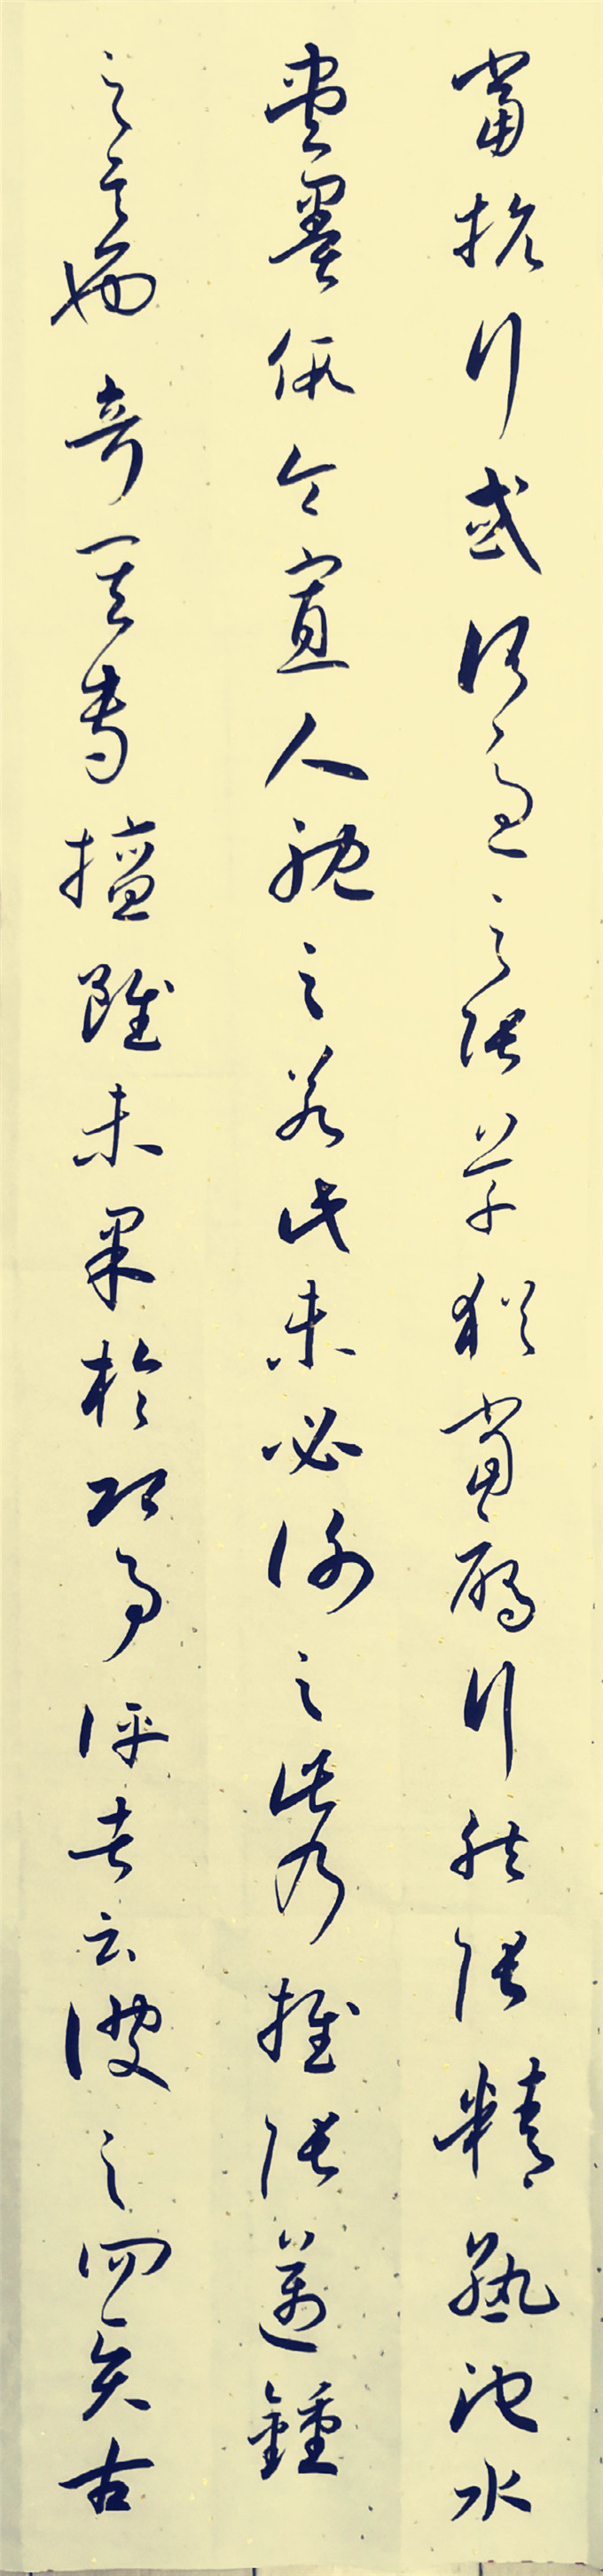 當抗行或謂過之張草猶當雁行然張精熟池水
盡墨假令寡人耽之若此未必謝之此乃推張邁鍾
之意也考其專擅雖未果於即事評者云彼之四賢古